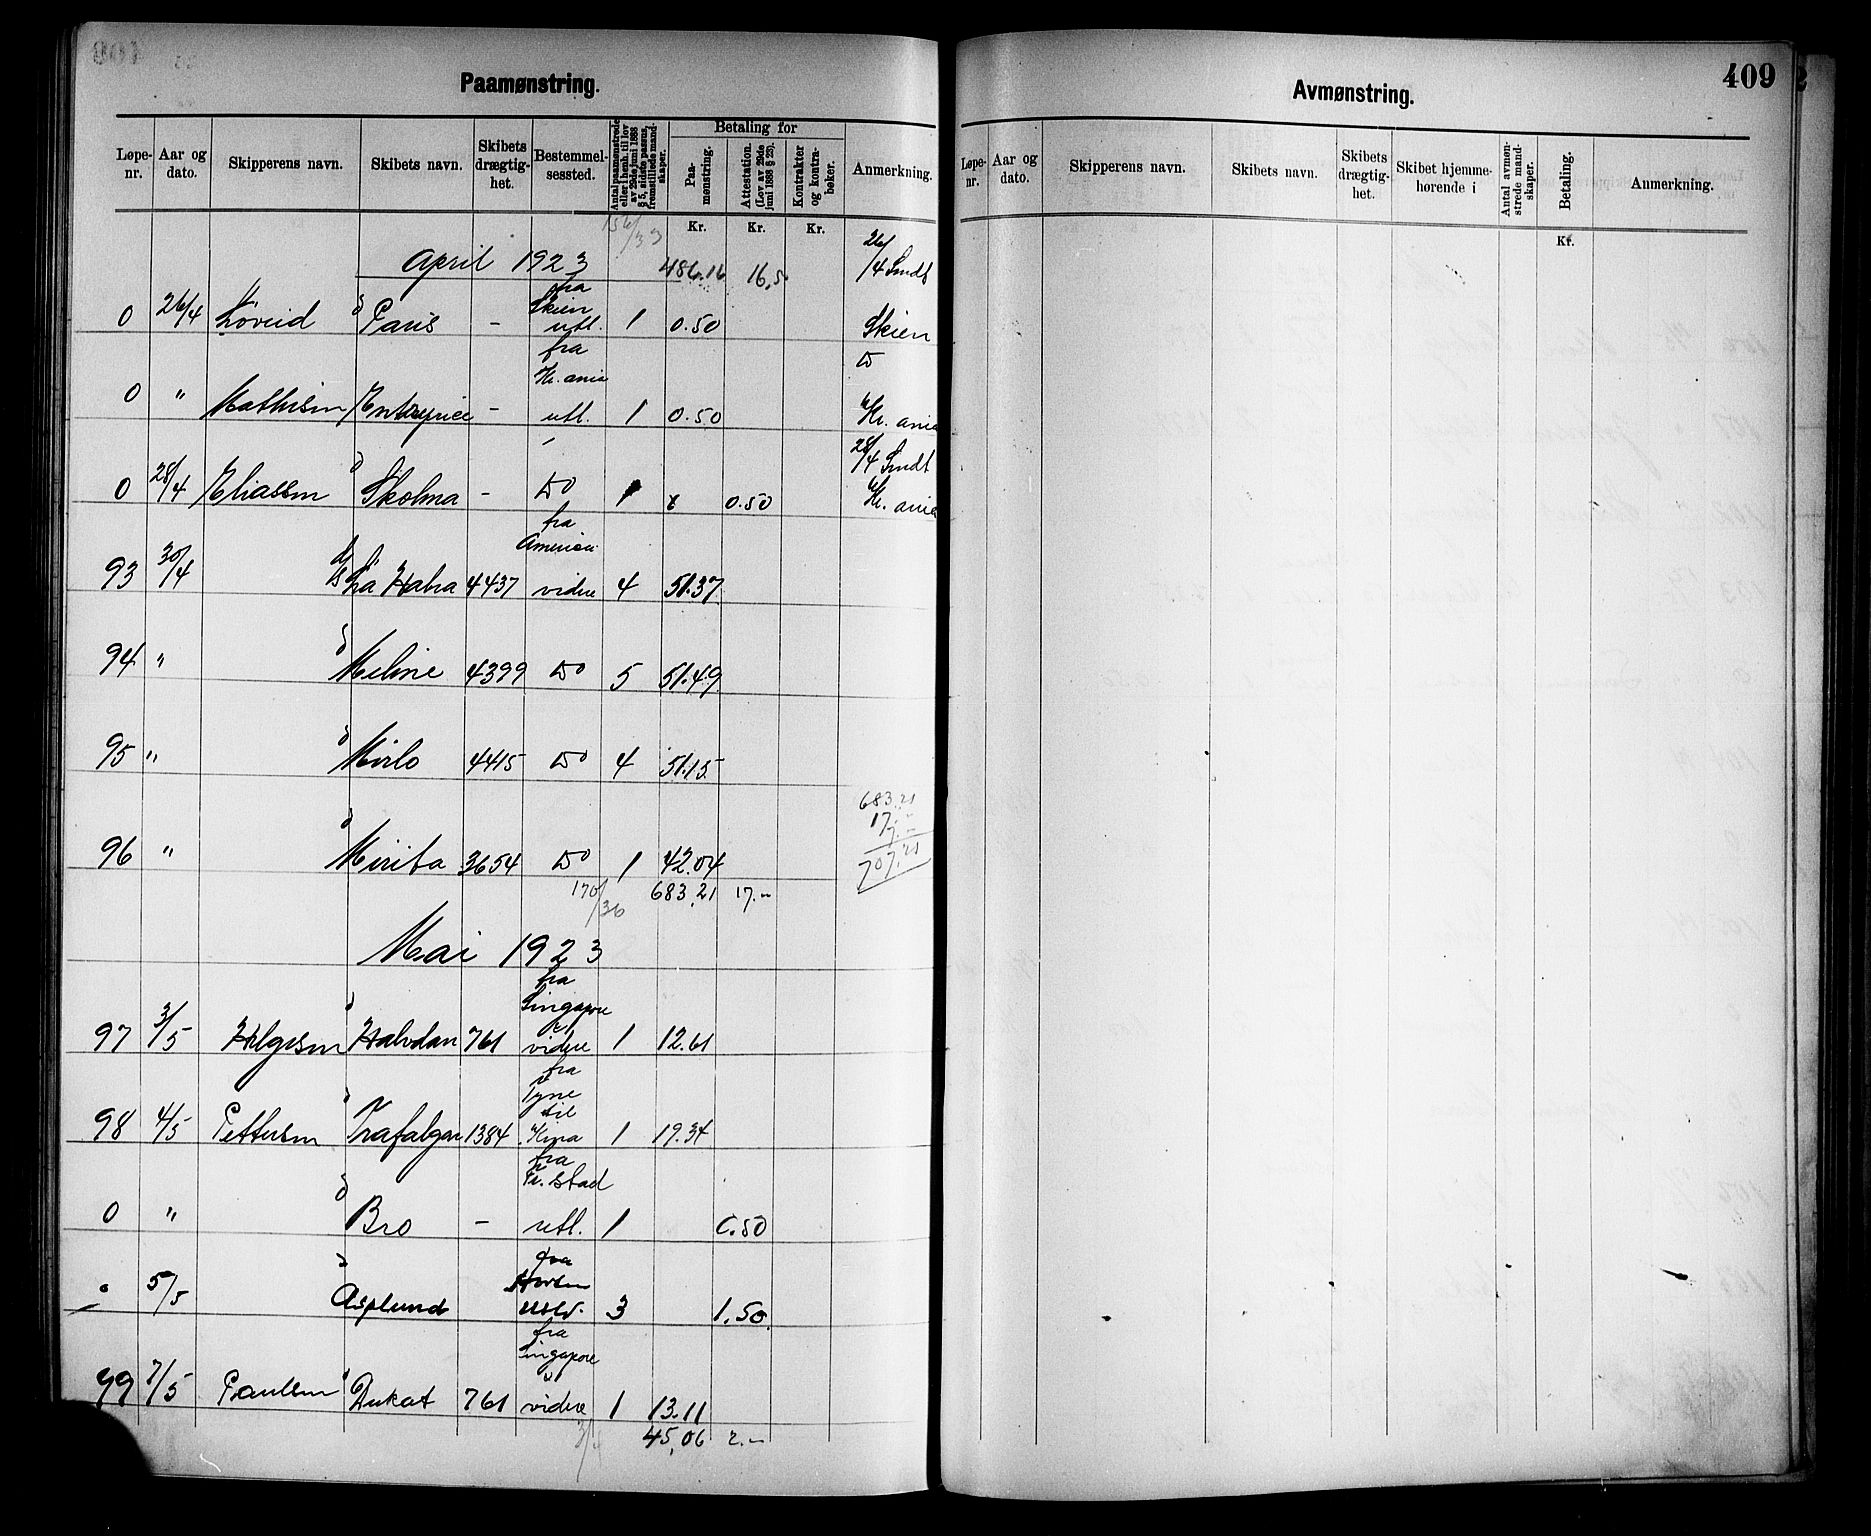 Paamønstring.
Løpe-nr. Aar og dato. Skipperens navn. Skibets navn. Skibets drægtighet. Bestemmelsessted. Antal paamønstrede eller i henh. til lov av 29de juni 1888 § 5, sidste passus, fremstillede mandskaper. Betaling for Paamønstring. Attestation. (Lov av 29de juni 1888 § 23). Kontrakter og kontrabøker. Anmerkning.
Kr. Kr. Kr.
April 1923 486.16 16,5 26/4 Sendt
0 26/4 Løveid Paris - fra Skien utl. 1 0.50 Skien
0 " Mathisen Enterprice - fra Kr. ania utl. 1 0.50 Do Kr. ania
0 28/4 Eliassen Skolma - Do 1 0.50 28/4 Sendt Kr. ania
93 30/4 d/s La Habra 4437 fra America videre 4 51.37
94 " Meline 4399 Do 5 51.49
95 " Mirlo 4415 Do 4 51.15
96 " Mirita 3654 Do 1 42.04
683.21
17.-
7.-
707,21
170/36 683,21 17.-
Mai 1923
97 3/5 Helgesen Halvdan 761 fra Singapore videre 1 12.61
98 4/5 Pettersen Trafalgar 1384 fra Tyne til Kina 1 19.34
0 " Bro - fra Fr. stad utl. 1 0.50
" 5/5 Asplund fra Horten 3 1.50
99 7/5 Paulsen Dukat 761 fra Singapore videre 1 13.11
45,06 2.-
409
Avmønstring.
Løpe-nr. Aar og dato. Skipperens navn. Skibets navn. Skibets drægtighet. Skibet hjemmehørende i Antal avmønstrede mandskaper. Betaling. Anmerkning.
Kr.